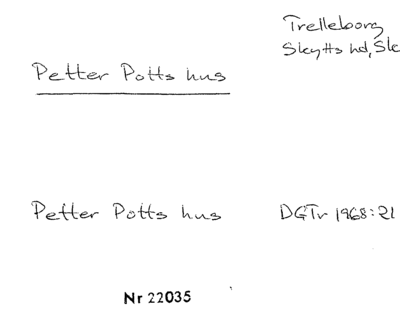 Trelleborg
Skytts hd, Sk
Petter Potts hus
Petter Potts hus DGTr 1968:21
Nr 22035